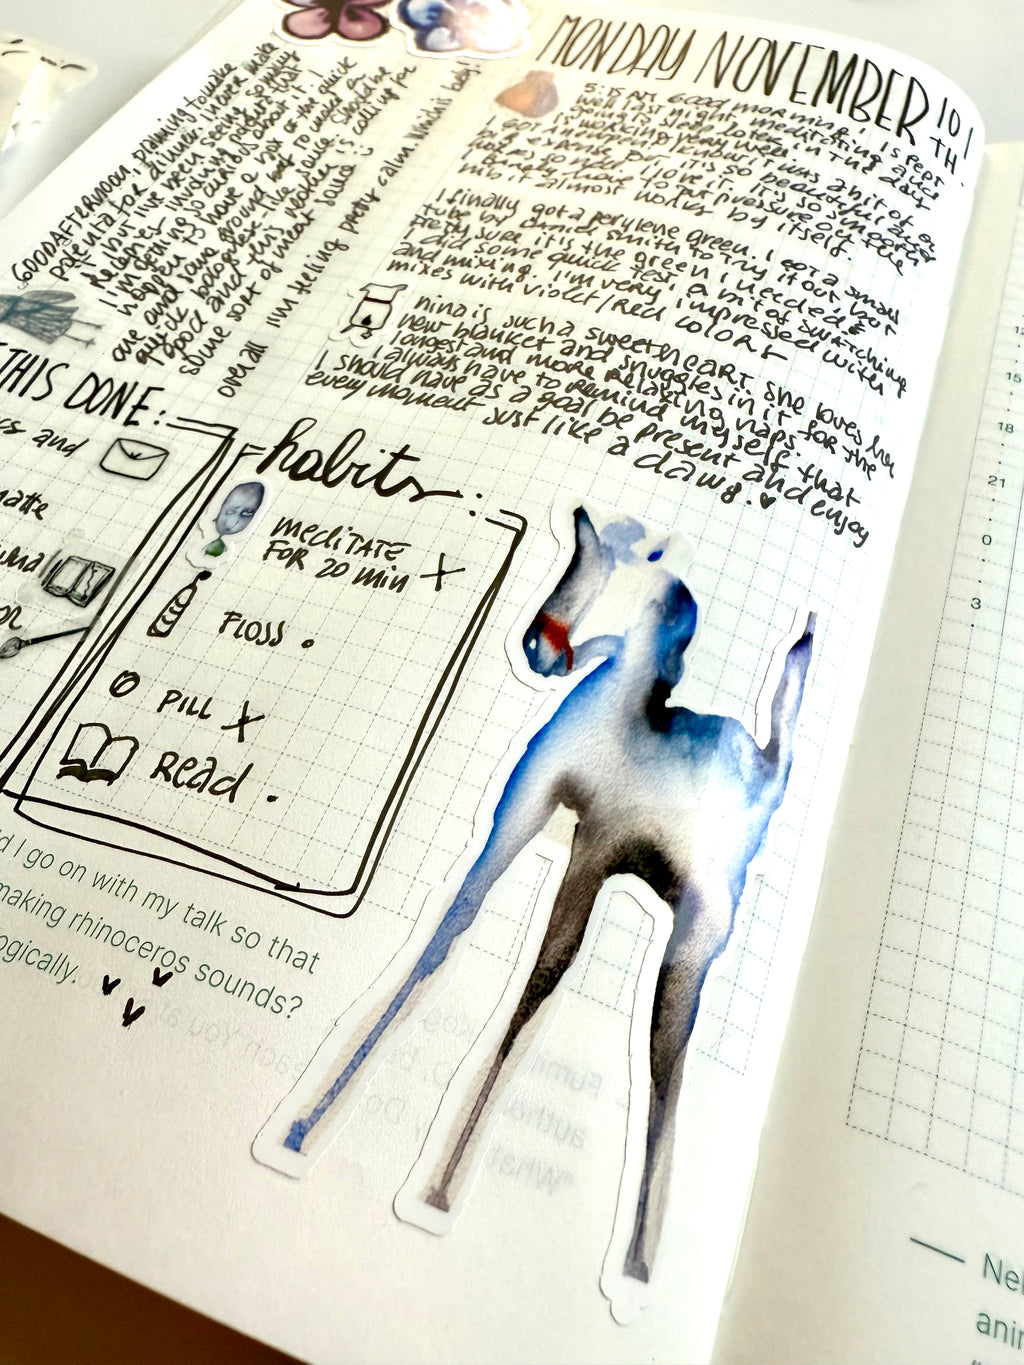 MONDAY NOVEMBER 10TH.
5:15 AM GOOD MORNING! I slept
well last night, meditating and
going to sleep later in the day
is working very well.
I got a new
big expense but I love it. It's so beautiful and
I barely have to put pressure on the
nib it almost works by itself.
I finally got a perylene green. I got a small
tube by Daniel Smith to try it out but
pretty sure it's the green I needed &
I did some quick test, a mit of swatching
and mixing. I'm very impressed with
mixes with violet/red colors
nina is such a sweetheart. She loves her
new blanket and snuggles in it for the
longest and more relaxing naps.
I always have to remind myself that
I should have as a goal be present and enjoy
every moment just like a dawg. ♥
GOOD AFTERNOON, planning to make
polenta for dinner. I never make
but I've been seeing so many
including
I'm getting so curious about it. I
happen to have a box of the quick
one and have ground beef to make a
quick bolognese-like sauce. Should be
good and this weather is calling for
some sort of meat sauce
overall I'm feeling pretty calm. Which
THIS DONE:
and
matte
or
habits:
MEDITATE
FOR 20 min X
FLOSS .
PILL X
Read .
I go on with my talk so that
making rhinoceros sounds?
ogically.
12
15
18
21
0
3
— Nel
anim